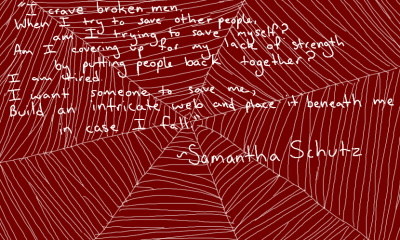 "I crave broken men.
When I try to save other people,
am I trying to save myself?
Am I covering up for my lack of strength
by putting people back together?
I am tired
I want someone to save me,
Build an intricate web and place it beneath me
in case I fall."
~Samantha Schutz